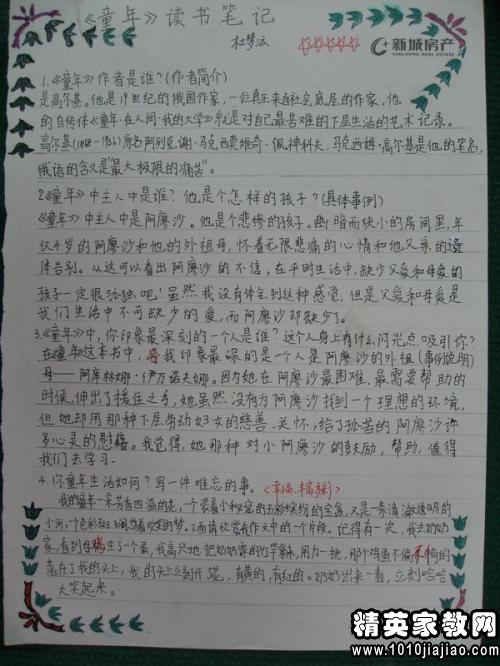 《童年》读书笔记
杜梦
新城房产
XINCHENG REAL ESTATE
1.《童年》作者是谁?(作者简介)
是高尔基。他是19世纪的俄国作家,一位真正来自社会底层的作家,他
的自传体《童年·在人间·我的大学》就是对自己苦难的下层生活的艺术记录。
高尔基(1868-1936)原名阿列克谢·马克西莫维奇·佩神科夫,马克西姆·高尔基是他的笔名,
俄语的含义是“最大极限的痛苦”。
2.《童年》中主人中是谁?他是个怎样的孩子?(具体事例)
《童年》中主人中是阿廖沙。他是个悲惨的孩子。幽暗而狭小的房间里,年
仅4岁的阿廖沙和他的外祖母,怀着无限悲痛的心情和他父亲的遗
体告别。从这可以看出阿廖沙的不信,在平时生活中,缺少父爱和母爱的
孩子一定很孤独吧!虽然我没有体会到这种感觉,但是父爱和母爱是
我们生活中不可缺少的爱,而阿廖沙却缺少了。
3.《童年》中,你印象最深刻的一个人是谁?这个人身上有什么闪光点吸引你?
在《童年》这本书中,我印象最深的是个人是阿廖沙的外祖(事例说明)
母——阿库林娜·伊万诺夫娜。因为她在阿廖沙最困难、最需要帮助的
时候,伸出了援住之手,她虽然没有为阿廖沙找到一个理想的环境,
但她却用那种下层劳动妇女的慈善、关怀,给了孤苦的阿廖沙许
多心灵的慰藉。我觉得,她那种对小阿廖沙的鼓励,帮助,值得
我们去学习.
4.你童年生活如何?写一件难忘的事。
我的童年一朵芳香四溢的花,一个装着小秘密的五彩缤纷的宝盒,又是一条清澈透明的
小河,一个色彩斑斓甜蜜欢笑的梦。下面请欣赏我作文中的一个片段。记得有一次,我去奶奶
家,看到母鸡生了一个蛋,我高兴地把奶奶家的竹竿拿来,用力一挑,那个鸡蛋不偏不倚的
落在了我的头上,我的头上立刻开花,有黄的,有红的。奶奶出来一看,立刻哈哈
大笑起来。
精英家教网
www.1010jiajiao.com